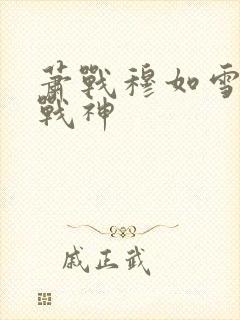 蕭戰穆如雪
戰神
戚正武